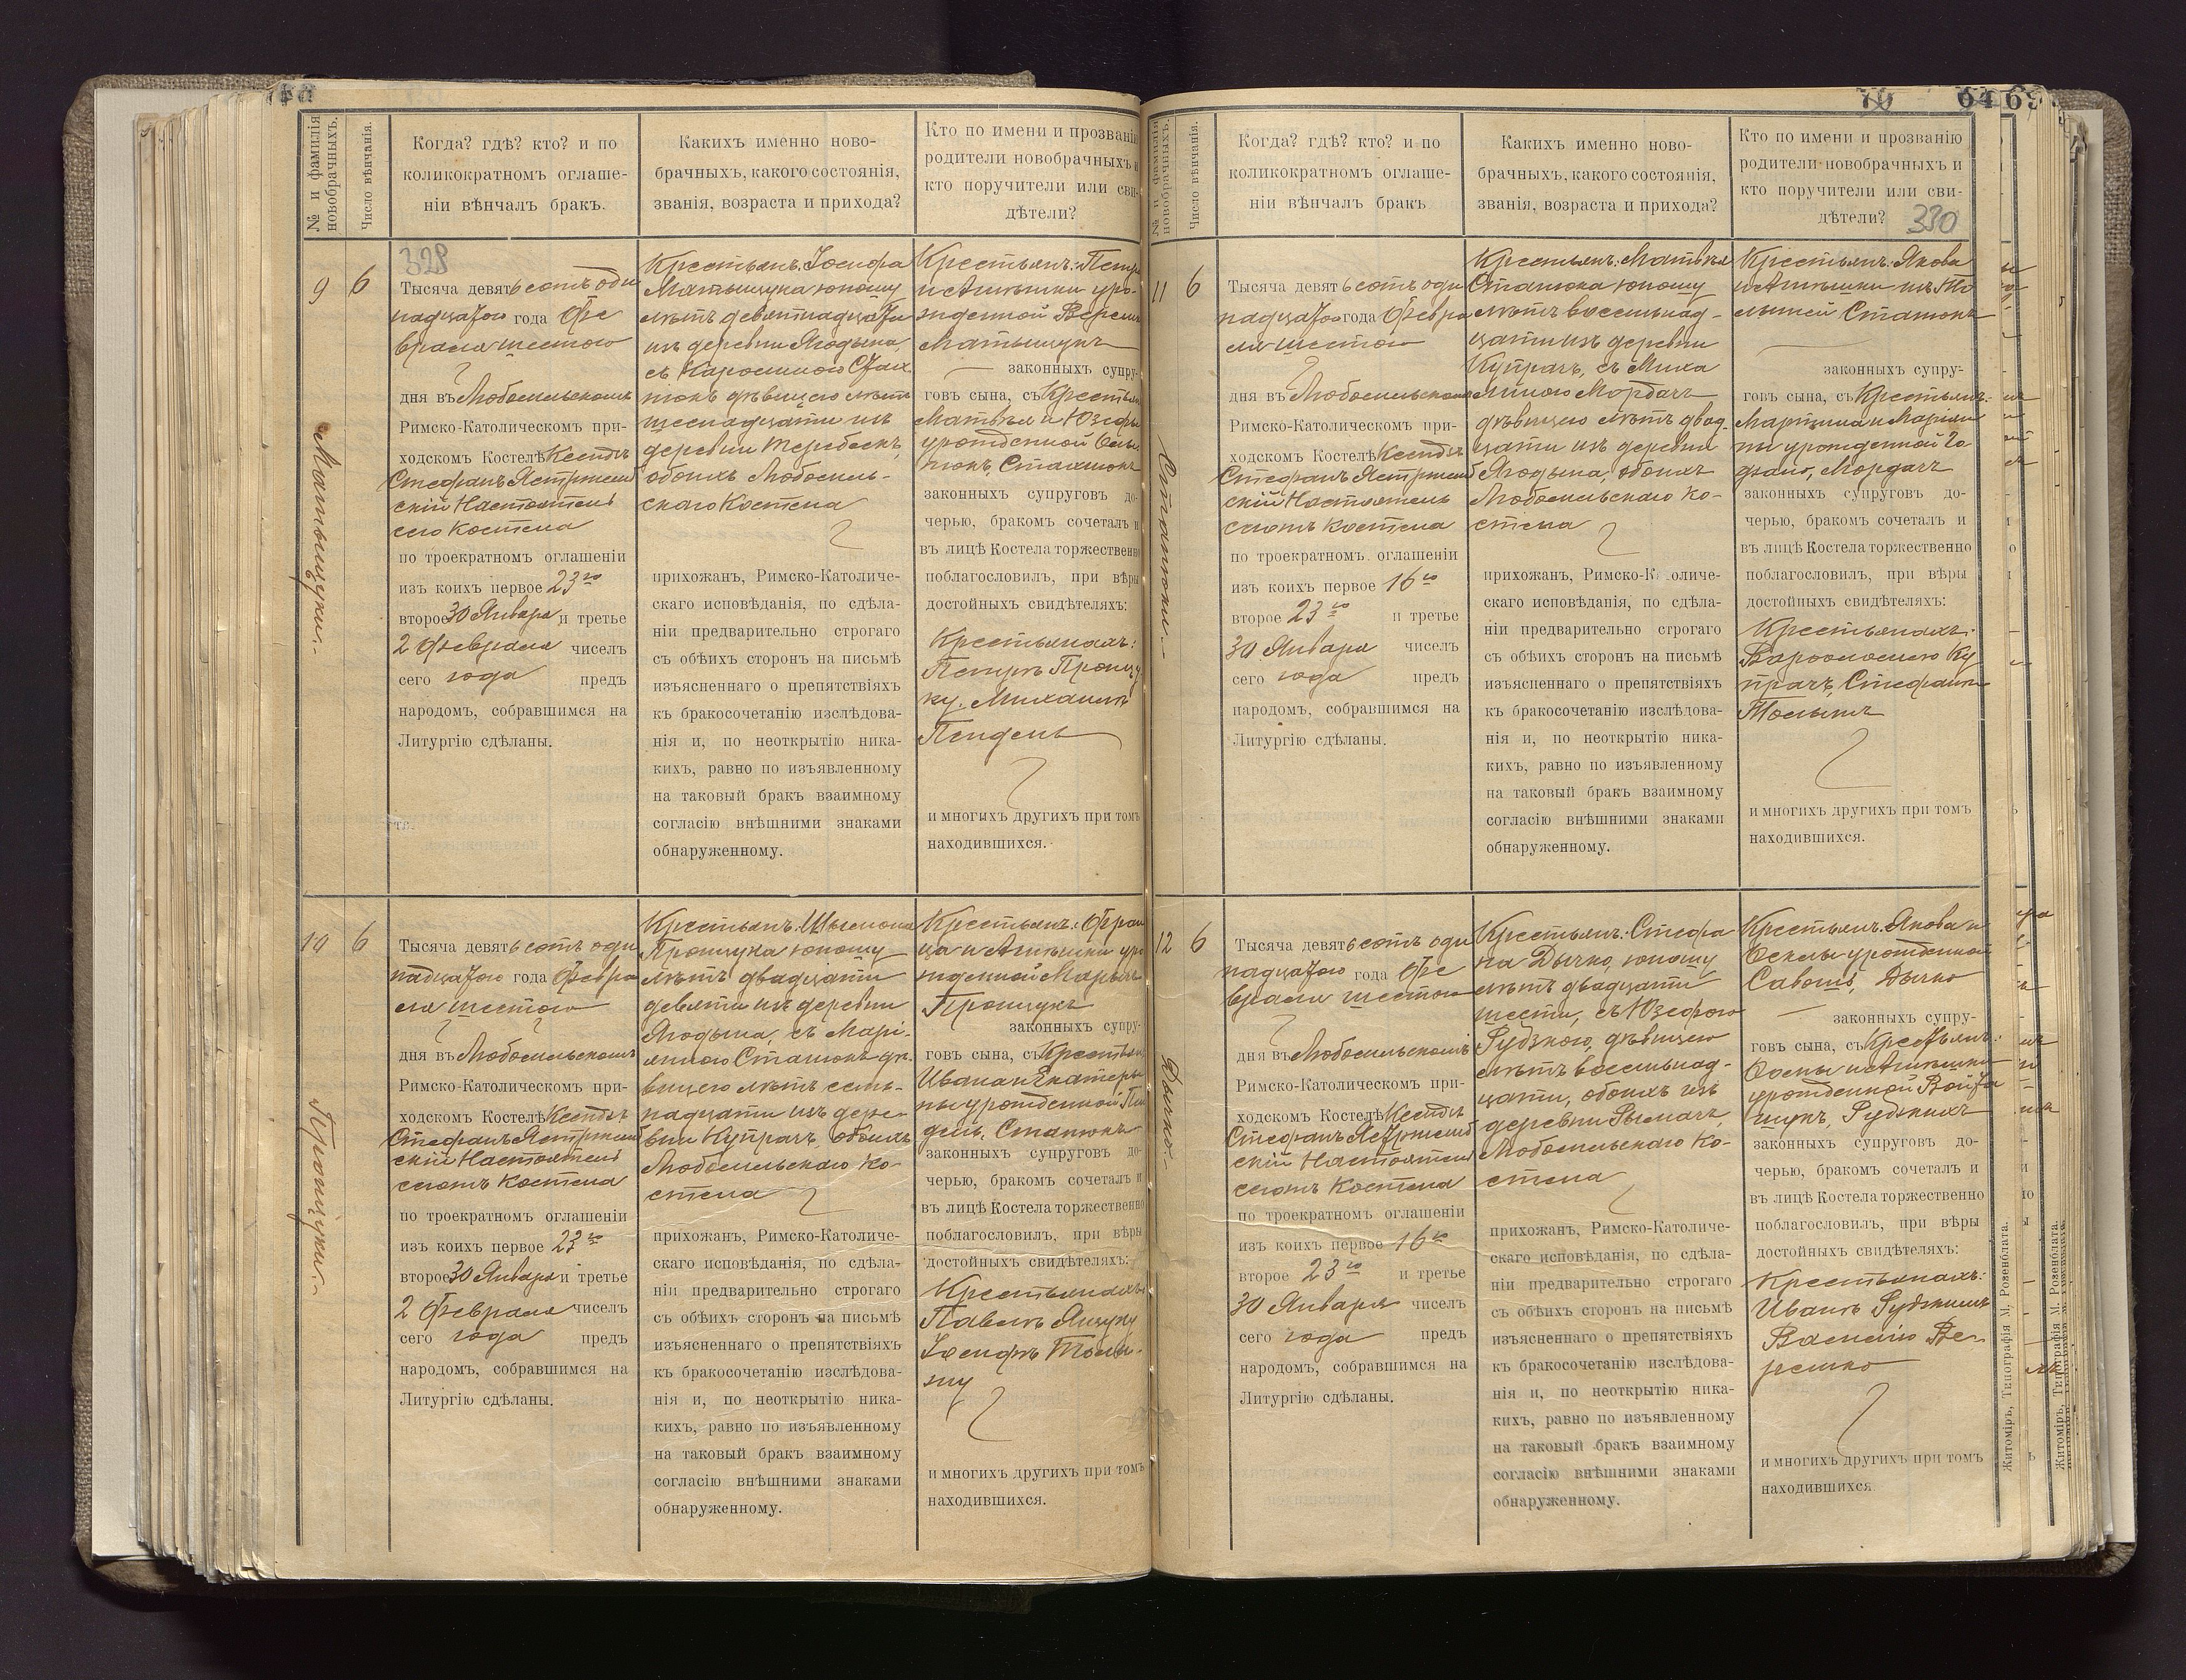 № и фамилія
новобрачныхъ.
Число вѣнчанія.
Когда? гдѣ? кто? и по
коликократномъ оглаше-
ніи вѣнчалъ бракъ.
Какихъ именно ново-
брачныхъ, какого состоянія,
званія, возраста и прихода?
Кто по имени и прозванію
родители новобрачныхъ и
кто поручители или сви-
дѣтели?
9
6
Матыщуки.
328
Тысяча девятьсотъ оди
надцатого года Фе
враля шестого
дня въ Любомльскомъ
Римско-Католическомъ при-
ходскомъ Костелѣ Ксендзъ
Стефанъ Ястржемб
скій Настоятель
сего Костела
по троекратномъ оглашеніи
изъ коихъ первое 23го
второе 30 Января и третье
2 Февраля чиселъ
сего года предъ
народомъ, собравшимся на
Литургію сдѣланы.
Крестьянъ: Іосифа
Матыщука юношу
лѣтъ девятнадцати
изъ деревни Ягодына,
съ Каролиною Сташ
дѣвицею лѣтъ
шеснадцати изъ
деревни Теребеекъ,
обоихъ Любомль-
скаго Костела
прихожанъ, Римско-Католиче-
скаго исповѣданія, по сдѣла-
ніи предварительно строгаго
съ обѣихъ сторонъ на письмѣ
изъясненнаго о препятствіяхъ
къ бракосочетанію изслѣдова-
нія и, по неоткрытію ника-
кихъ, равно по изъявленному
на таковый бракъ взаимному
согласію внѣшними знаками
обнаруженному.
Крестьянъ: Петра
и Агнѣшки уро-
жденной
Матыщукъ
законныхъ супру-
говъ сына, съ Крестьян
Матвѣя и Юзефы
урожденной
законныхъ супруговъ до-
черью, бракомъ сочеталъ и
въ лицѣ Костела торжественно
поблагословилъ, при вѣры
достойныхъ свидѣтеляхъ:
Крестьянахъ:
Петрѣ Прощу
ку, Михаилѣ
Пендель
и многихъ другихъ при томъ
находившихся.
10
6
Прощуки.
Тысяча девятьсотъ оди
надцатого года Февра
ля шестого
дня въ Любомльскомъ
Римско-Католическомъ при-
ходскомъ Костелѣ Ксендзъ
Стефанъ Ястржемб
скій Настоятель
сегожъ Костела
по троекратномъ оглашеніи
изъ коихъ первое 23го
второе 30 Января и третье
2 Февраля чиселъ
сего года предъ
народомъ, собравшимся на
Литургію сдѣланы.
Крестьянъ: Шымона
Прощука юношу
лѣтъ двадцати
девяти изъ деревни
Ягодына, съ Марі-
анною Станюкъ дѣ-
вицею лѣтъ сем-
надцати изъ дере-
вни Купрачъ, обоихъ
Любомльскаго Ко-
стела
прихожанъ, Римско-Католиче-
скаго исповѣданія, по сдѣла-
ніи предварительно строгаго
съ обѣихъ сторонъ на письмѣ
изъясненнаго о препятствіяхъ
къ бракосочетанію изслѣдова-
нія и, по неоткрытію ника-
кихъ, равно по изъявленному
на таковый бракъ взаимному
согласію внѣшними знаками
обнаруженному.
Крестьянъ: Фран
ца и Агнѣшки уро
жденной
Прощукъ
законныхъ супру-
говъ сына, съ Крестьян
Ивана и Екатери
ны урожденной Пен
дель, Станюкъ
законныхъ супруговъ до-
черью, бракомъ сочеталъ и
въ лицѣ Костела торжественно
поблагословилъ, при вѣры
достойныхъ свидѣтеляхъ:
Крестьянахъ:
Павелъ Ящуку
Іосифъ
и многихъ другихъ при томъ
находившихся.
70
64
69
№ и фамилія
новобрачныхъ.
Число вѣнчанія.
Когда? гдѣ? кто? и по
коликократномъ оглаше-
ніи вѣнчалъ бракъ
Какихъ именно ново-
брачныхъ, какого состоянія,
званія, возраста и прихода?
Кто по имени и прозванію
родители новобрачныхъ и
кто поручители или сви-
дѣтели?
330
11
6
Станюки.
Тысяча девятьсотъ оди
надцатого года Февра
ля шестого
дня въ Любомльскомъ
Римско-Католическомъ при-
ходскомъ Костелѣ Ксендзъ
Стефанъ Ястржемб
скій Настоятель
сегожъ Костела
по троекратномъ оглашеніи
изъ коихъ первое 16го
второе 23го и третье
30 Января чиселъ
сего года предъ
народомъ, собравшимся на
Литургію сдѣланы.
Крестьянъ: Матвѣя
Станюка юношу
лѣтъ восемьнад-
цати изъ деревни
Купрачъ, съ Миха
линою Мордачъ
дѣвицею лѣтъ двад-
цати изъ деревни
Ягодына, обоихъ
Любомльскаго Ко-
стела
прихожанъ, Римско-Католиче-
скаго исповѣданія, по сдѣла-
ніи предварительно строгаго
съ обѣихъ сторонъ на письмѣ
изъясненнаго о препятствіяхъ
къ бракосочетанію изслѣдова-
нія и, по неоткрытію ника-
кихъ, равно по изъявленному
на таковый бракъ взаимному
согласію внѣшними знаками
обнаруженному.
Крестьянъ: Якова
и Агнѣшки
Станюкъ
законныхъ супру-
говъ сына, съ Крестьянъ:
Мартина и Маріан
ны урожденной
Мордачъ
законныхъ супруговъ до-
черью, бракомъ сочеталъ и
въ лицѣ Костела торжественно
поблагословилъ, при вѣры
достойныхъ свидѣтеляхъ:
Крестьянахъ:
Варфоломею Ку
прачъ, Стефанѣ
и многихъ другихъ при томъ
находившихся.
12
6
Дычко.
Тысяча девятьсотъ оди
надцатого года Фе
враля шестого
дня въ Любомльскомъ
Римско-Католическомъ при-
ходскомъ Костелѣ Ксендзъ
Стефанъ Ястржемб
скій Настоятель
сегожъ Костела
по троекратномъ оглашеніи
изъ коихъ первое 16го
второе 23го и третье
30 Января чиселъ
сего года предъ
народомъ, собравшимся на
Литургію сдѣланы.
Крестьянъ: Стефа
на Дычко, юношу
лѣтъ двадцати
шести, съ Юзефою
Рудзкою, дѣвицею
лѣтъ восемьнад-
цати, обоихъ изъ
деревни Рымачъ,
Любомльскаго Ко-
стела
прихожанъ, Римско-Католиче-
скаго исповѣданія, по сдѣла-
ніи предварительно строгаго
съ обѣихъ сторонъ на письмѣ
изъясненнаго о препятствіяхъ
къ бракосочетанію изслѣдова-
нія и, по неоткрытію ника-
кихъ, равно по изъявленному
на таковый бракъ взаимному
согласію внѣшними знаками
обнаруженному.
Крестьянъ: Якова и
урожденной
Дычко
законныхъ супру-
говъ сына, съ Крестьянъ:
и Агнѣшки
урожденной Войтю
щукъ, Рудзкихъ
законныхъ супруговъ до-
черью, бракомъ сочеталъ и
въ лицѣ Костела торжественно
поблагословилъ, при вѣры
достойныхъ свидѣтеляхъ:
Крестьянахъ:
Иванъ Рудзкимъ
Василію Ве-
ремко
и многихъ другихъ при томъ
находившихся
Житоміръ, Типографія М. Розенблата.
Житоміръ, Типографія М. Розенблата.